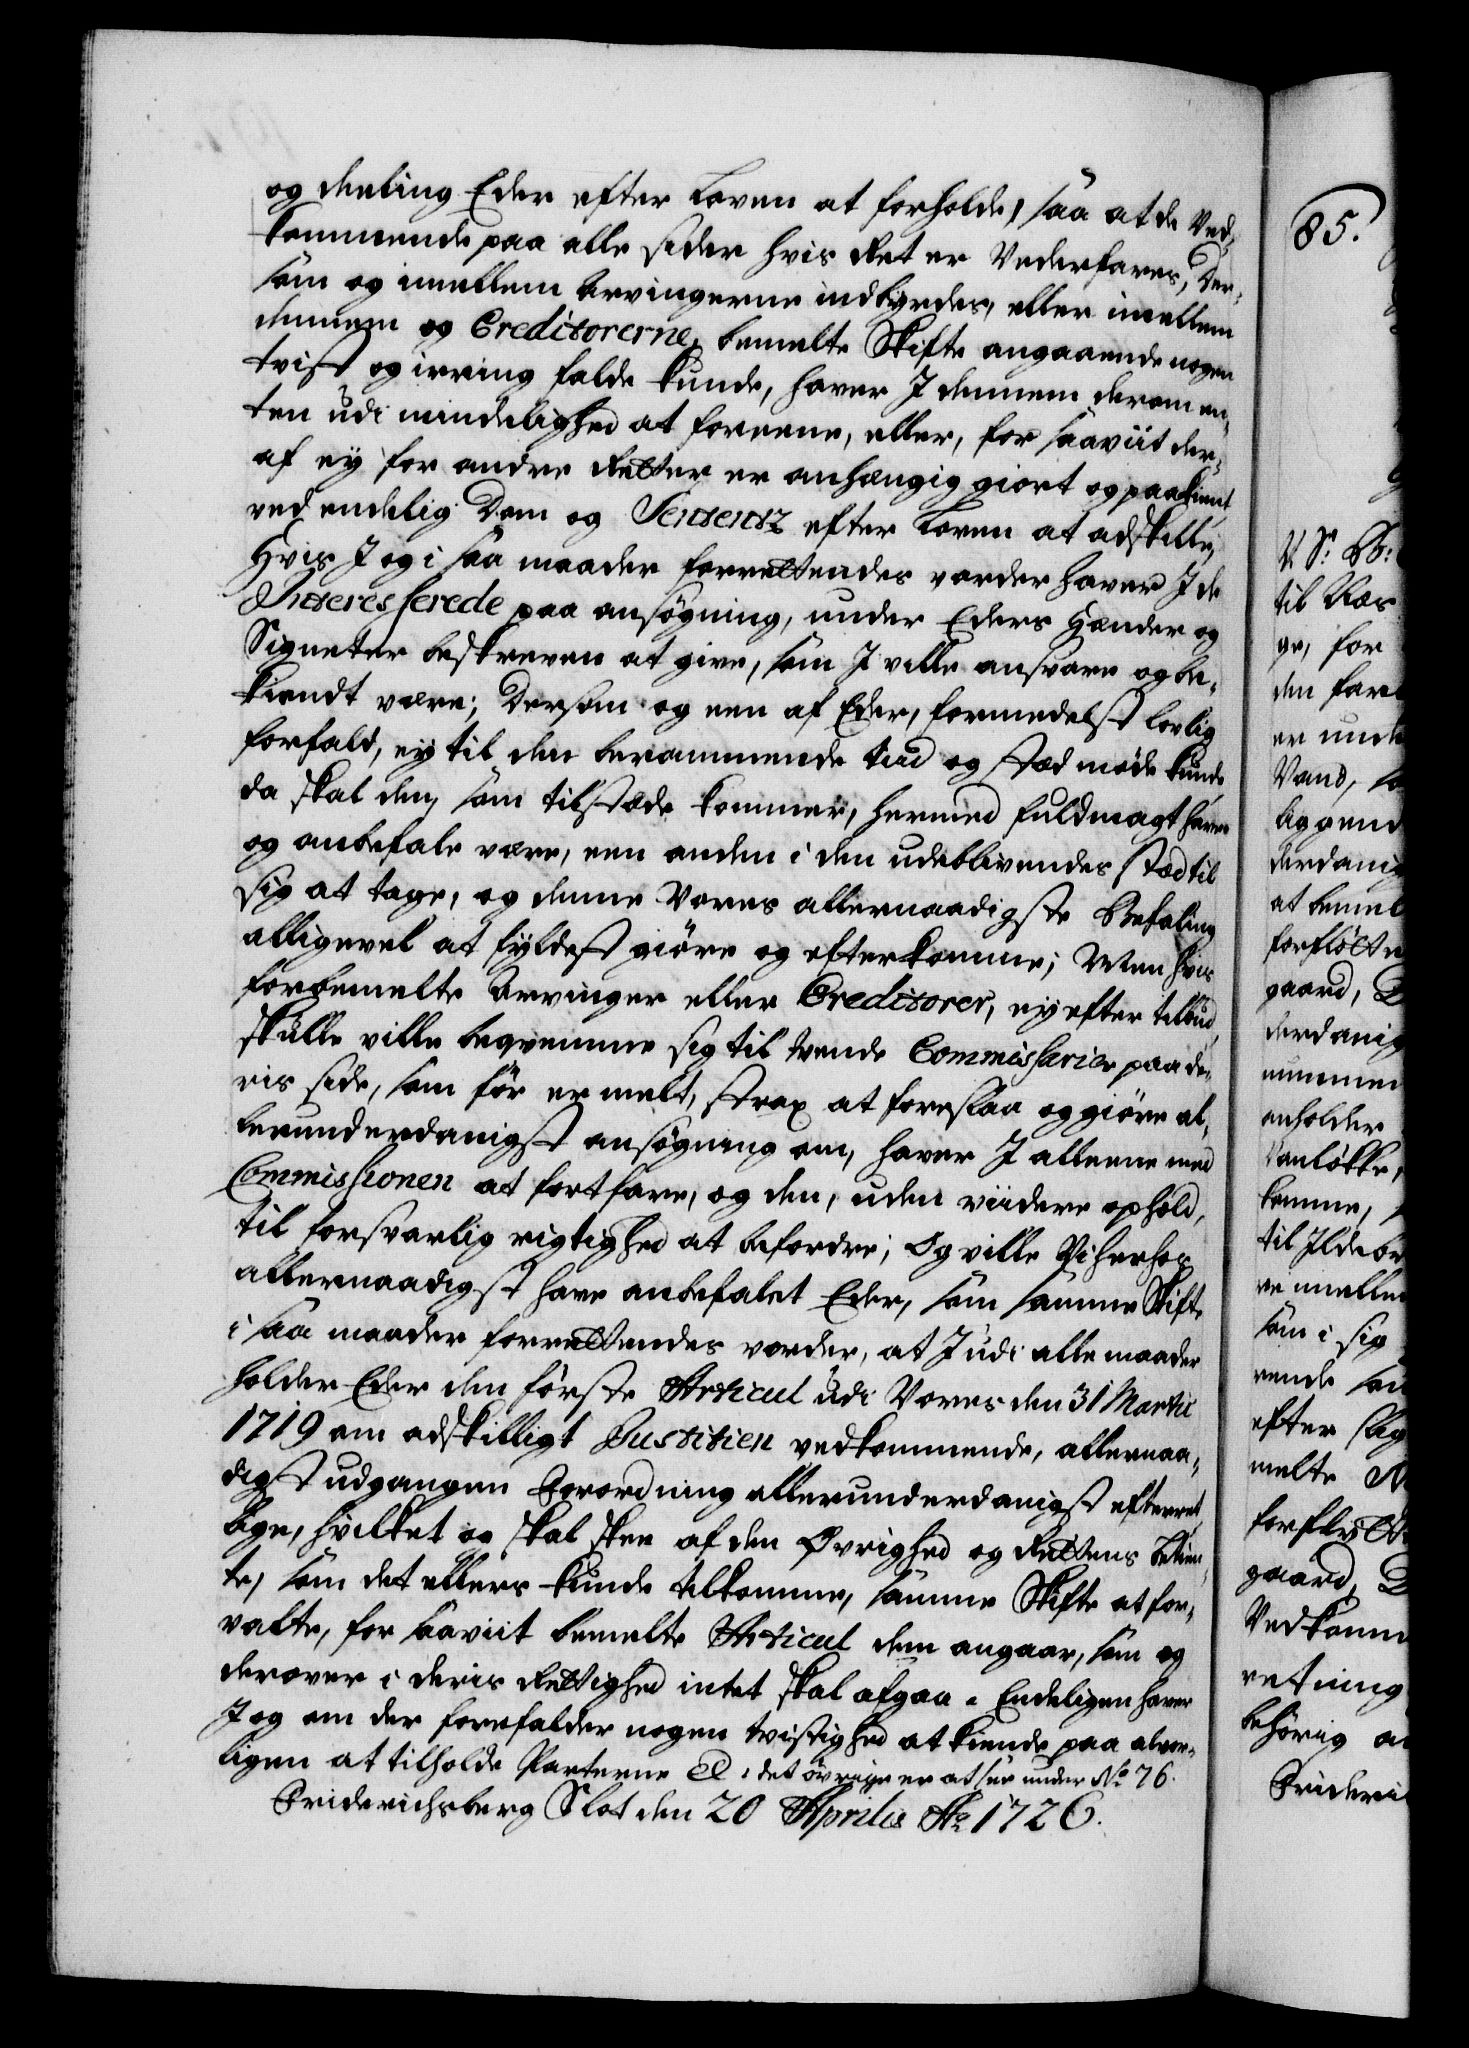 og deeling Eder efter Loven at forholde, saa at de Ved-
kommende paa alle sider hvis Ret er Vederfares, Der-
som og imellem Arvingerne indbyrdes, eller imellem
dennem og Creditorerne, bemelte Skifte angaaende nogen
tvist og irring falde kunde, haver I dennem derom en-
ten udi mindelighed at foreene, eller, for saaviit der-
af ey for andre Retter er anhængig giort og paakient
ved endelig Dom og Sentenz efter Loven at adskille,
Hvis I og i saa maader forrettendes vorder haver I de
Interesserede paa ansøgning, under Eders Hænder og
Signeter beskreven at give, som I ville ansvare og be-
kiendt være; Dersom og een af Eder, formedelst lovlig
forfald, ey til den berammende tiid og stæd møde kunde
da skal den, som tilstæde kommer, hermed fuldmagt have
og anbefale være, een anden i den udeblivendes stæd til
sig at tage, og denne Vores allernaadigste Befaling
alligevel at fyldest giøre og efterkomme; Men hvis
forbemelte Arvinger eller Creditorer, ey efter tilbud
skulle ville beqvemme sig til tvende Commissarier paa de-
ris side, som før er melt, strax at foreslaa og giøre al-
lerunderdanigst ansøgning om, haver I alleene med
Commissionen at fortfare, og den, uden viidere ophold,
til forsvarlig rigtighed at befordre; Og ville Vi herhos
allernaadigst have anbefalet Eder, som samme Skifte
i saa maader forrettendes vorder, at I udi alle maader
holder Eder den første Articul udi Vores den 31 Martii
1719 om adskilligt Justitien vedkommende, allernaa-
digst udgangen Forordning allerunderdanigst efterret-
lige, hvilket og skal skee af den Øvrighed og Rettens Betien-
te, som det ellers kunde tilkomme, samme Skifte at for-
valte, for saaviit bemelte Articul dem angaar, som og
derover i deris Rettighed intet skal afgaa. Endeligen haver
I og om der forefalder nogen tvistighed at kiende paa alvor-
ligen at tilholde Parterne &c. det øvrige er at see under No 76.
Friderichsberg Slot den 20 Aprilis Ao 1726.
85.
til Vor
ge, for
Vand, 
derdanig
at bemel
gaard, D
derdanig
anholder
som i sig
efter
melte
gaard, D
Vedkomm
retning
behørig
Frideri